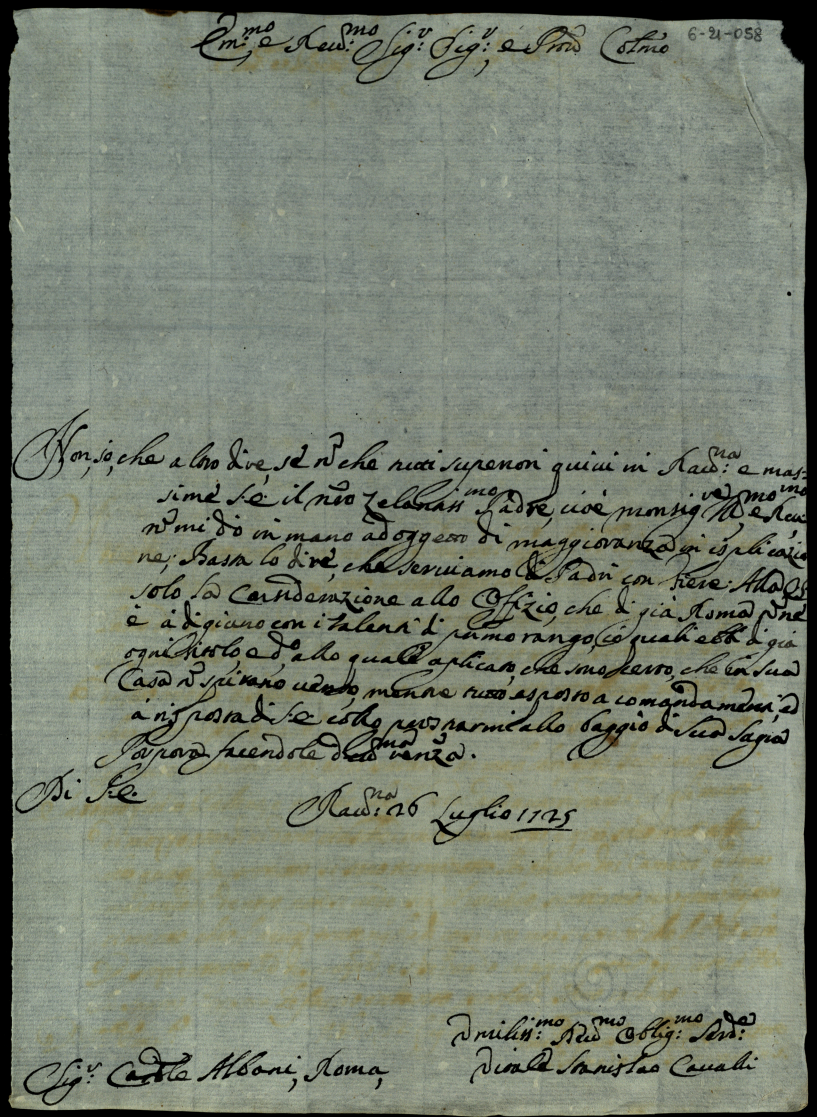 Em:mo e Reu:mo Sig:r Sig:r, e Pron Colmo
6-21-058
Non, so, che altro dire, se nõ che tutti superiori quiui in Rau:na e mas-
sime S:E: il nro Zelantiss:mo Padre, cioè monsig:re Ill:mo e Reu:mo
nõ mi dò in mano ad oggetto di maggioranza in esplicazio
ne; Basta lo dire, che seruiamo di Padri con
solo la Considerazione allo Offizio, che di già Roma
è à digiuno con i talenti di primo rango, quali ebbi di già
ogni titolo e allo quale aplicato, che sono certo, che in sua
Casa nõ spirano uento, mentre tutto esposto a comandamenti, ed
à risposta di S:E: collo prostrarmi allo baggio di Sua Sagra
Porpora facendole
Di S:E:
Rau:na 26 Luglio 1725
Vmiliss:mo Deu:mo Oblig:mo Seru:e
Vitale Stanislao Caualli
Sig:r Cardle Albani, Roma,